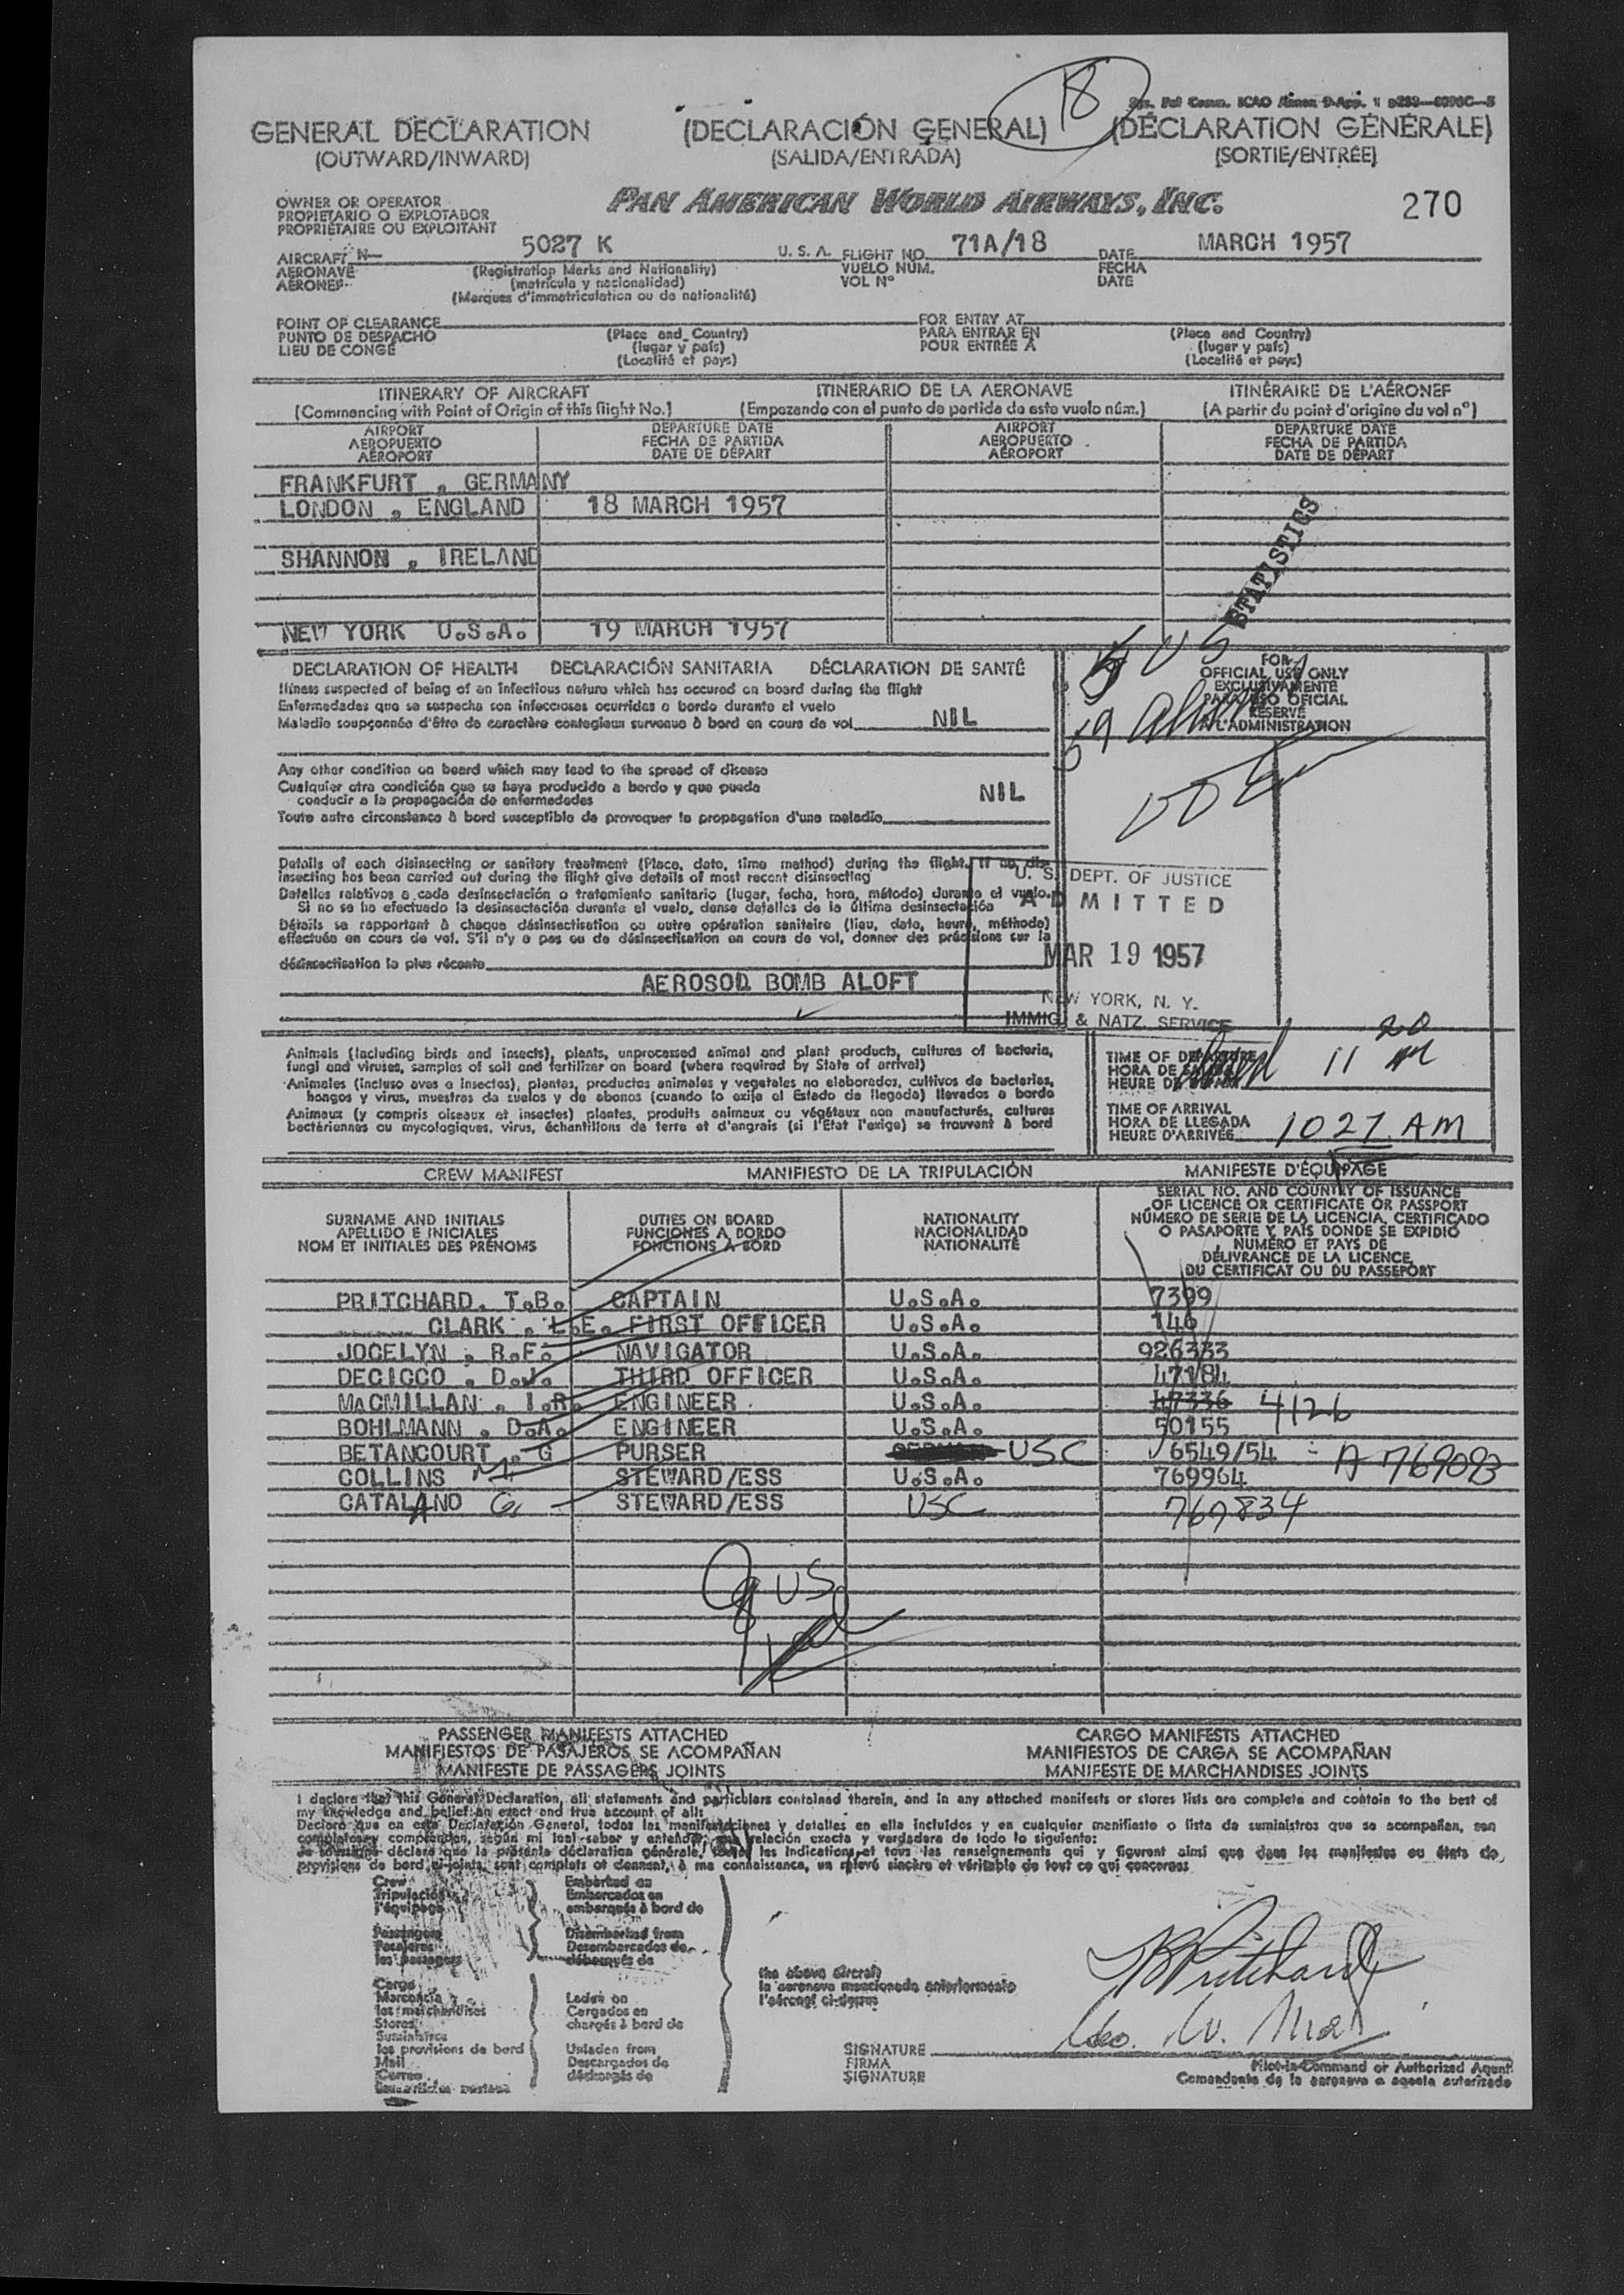 18
GENERAL DECLARATION (DECLARACIÓN GENERAL) (DÉCLARATION GÉNÉRALE)
(OUTWARD/INWARD) (SALIDA/ENTRADA) (SORTIE/ENTRÉE)
OWNER OR OPERATOR
PROPIETARIO O EXPLOTADOR
PROPRIÉTAIRE OU EXPLOITANT
PAN AMERICAN WORLD AIRWAYS, INC. 270
AIRCRAFT N— 5027 K U. S. A. FLIGHT NO. 71A/18 DATE MARCH 1957
AERONAVE (Registration Marks and Nationality) VUELO NÚM. FECHA
AÉRONEF (matrícula y nacionalidad) VOL Nº DATE
(Marques d'immatriculation ou de nationalité)
POINT OF CLEARANCE FOR ENTRY AT
PUNTO DE DESPACHO (Place and Country) PARA ENTRAR EN (Place and Country)
LIEU DE CONGÉ (lugar y país) POUR ENTRÉE À (lugar y país)
(Localité et pays) (Localité et pays)
ITINERARY OF AIRCRAFT ITINERARIO DE LA AERONAVE ITINÉRAIRE DE L'AÉRONEF
(Commencing with Point of Origin of this flight No.) (Empezando con el punto de partida de este vuelo núm.) (A partir du point d'origine du vol nº)
AIRPORT DEPARTURE DATE AIRPORT DEPARTURE DATE
AEROPUERTO FECHA DE PARTIDA AEROPUERTO FECHA DE PARTIDA
AÉROPORT DATE DE DÉPART AÉROPORT DATE DE DÉPART
FRANKFURT , GERMANY
LONDON , ENGLAND 18 MARCH 1957
SHANNON , IRELAND
STATISTICS
NEW YORK U.S.A. 19 MARCH 1957
DECLARATION OF HEALTH DECLARACIÓN SANITARIA DÉCLARATION DE SANTÉ
Illness suspected of being of an infectious nature which has occured on board during the flight
Enfermedades que se sospecha son infecciosas ocurridas a bordo durante el vuelo
Maladie soupçonnée d'être de caractère contagieux survenue à bord en cours de vol NIL
US
FOR
OFFICIAL USE ONLY
EXCLUSIVAMENTE
PARA USO OFICIAL
RÉSERVÉ
A L'ADMINISTRATION
Any other condition on board which may lead to the spread of disease
Cualquier otra condición que se haya producido a bordo y que pueda
conducir a la propagación de enfermedades NIL
Toute autre circonstance à bord susceptible de provoquer la propagation d'une maladie
Details of each disinsecting or sanitary treatment (Place, date, time method) during the flight. If no dis-
insecting has been carried out during the flight give details of most recent disinsecting
Detalles relativos a cada desinsectación o tratamiento sanitario (lugar, fecha, hora, método) durante el vuelo.
Si no se ha efectuado la desinsectación durante el vuelo, dense detalles de la última desinsectación
Détails se rapportant à chaque désinsectisation ou autre opération sanitaire (lieu, date, heure, méthode)
effectuée en cours de vol. S'il n'y a pas eu de désinsectisation en cours de vol, donner des précisions sur la
désinsectisation la plus récente
AEROSOL BOMB ALOFT
U. S. DEPT. OF JUSTICE
ADMITTED
MAR 19 1957
NEW YORK, N. Y.
IMMIG. & NATZ. SERVICE
Animals (including birds and insects), plants, unprocessed animal and plant products, cultures of bacteria,
fungi and viruses, samples of soil and fertilizer on board (where required by State of arrival)
Animales (incluso aves e insectos), plantas, productos animales y vegetales no elaborados, cultivos de bacterias,
hongos y virus, muestras de suelos y de abonos (cuando lo exija el Estado de llegada) llevados a bordo
Animaux (y compris oiseaux et insectes) plantes, produits animaux ou végétaux non manufacturés, cultures
bactériennes ou mycologiques, virus, échantillons de terre et d'engrais (si l'État l'exige) se trouvant à bord
TIME OF DEPARTURE
HORA DE SALIDA 11 20 AM
HEURE DE DÉPART
TIME OF ARRIVAL
HORA DE LLEGADA
HEURE D'ARRIVÉE 1027 AM
CREW MANIFEST MANIFIESTO DE LA TRIPULACIÓN MANIFESTE D'ÉQUIPAGE
SURNAME AND INITIALS DUTIES ON BOARD NATIONALITY
APELLIDO E INICIALES FUNCIONES A BORDO NACIONALIDAD
NOM ET INITIALES DES PRÉNOMS FONCTIONS À BORD NATIONALITÉ
SERIAL NO. AND COUNTRY OF ISSUANCE
OF LICENCE OR CERTIFICATE OR PASSPORT
NÚMERO DE SERIE DE LA LICENCIA, CERTIFICADO
O PASAPORTE Y PAÍS DONDE SE EXPIDIÓ
NUMÉRO ET PAYS DE
DÉLIVRANCE DE LA LICENCE
DU CERTIFICAT OU DU PASSEPORT
PRITCHARD, T.B. CAPTAIN U.S.A. 7399
CLARK , L.E. FIRST OFFICER U.S.A. 146
JOCELYN , R.F. NAVIGATOR U.S.A. 926333
DECICCO , D.J. THIRD OFFICER U.S.A. 47184
MacMILLAN , I.R. ENGINEER U.S.A. 47336 4126
BOHLMANN , D.A. ENGINEER U.S.A. 50155
BETANCOURT , G PURSER USC 6549/54 - A 769093
COLLINS M STEWARD/ESS U.S.A. 769964
CATALANO G STEWARD/ESS USC 769834
9 USC
PASSENGER MANIFESTS ATTACHED CARGO MANIFESTS ATTACHED
MANIFIESTOS DE PASAJEROS SE ACOMPAÑAN MANIFIESTOS DE CARGA SE ACOMPAÑAN
MANIFESTE DE PASSAGERS JOINTS MANIFESTE DE MARCHANDISES JOINTS
I declare that this General Declaration, all statements and particulars contained therein, and in any attached manifests or stores lists are complete and contain to the best of
my knowledge and belief an exact and true account of all:
Declaro que en esta Declaración General, todas las manifestaciones y detalles en ella incluidos y en cualquier manifiesto o lista de suministros que se acompañan, son
completos y comprenden, según mi leal saber y entender, una relación exacta y verdadera de todo lo siguiente:
Je soussigné déclare que la présente déclaration générale, toutes les indications et tous les renseignements qui y figurent ainsi que dans les manifestes ou états de
provisions de bord ci-joints, sont complets et donnent, à ma connaissance, un relevé sincère et véritable de tout ce qui concerne:
Crew Embarked on
Tripulación Embarcados en
l'équipage embarqués à bord de
Passengers Disembarked from
Pasajeros Desembarcados de
les passagers débarqués de
the above aircraft
la aeronave mencionada anteriormente
l'aéronef ci-dessus
Cargo
Mercancía Laden on
les marchandises Cargados en
Stores chargés à bord de
Suministros
les provisions de bord Unladen from
Mail Descargados de
Correo déchargés de
TB Pritchard
Geo. W.
SIGNATURE
FIRMA Pilot-in-Command or Authorized Agent
SIGNATURE Comandante de la aeronave o agente autorizado